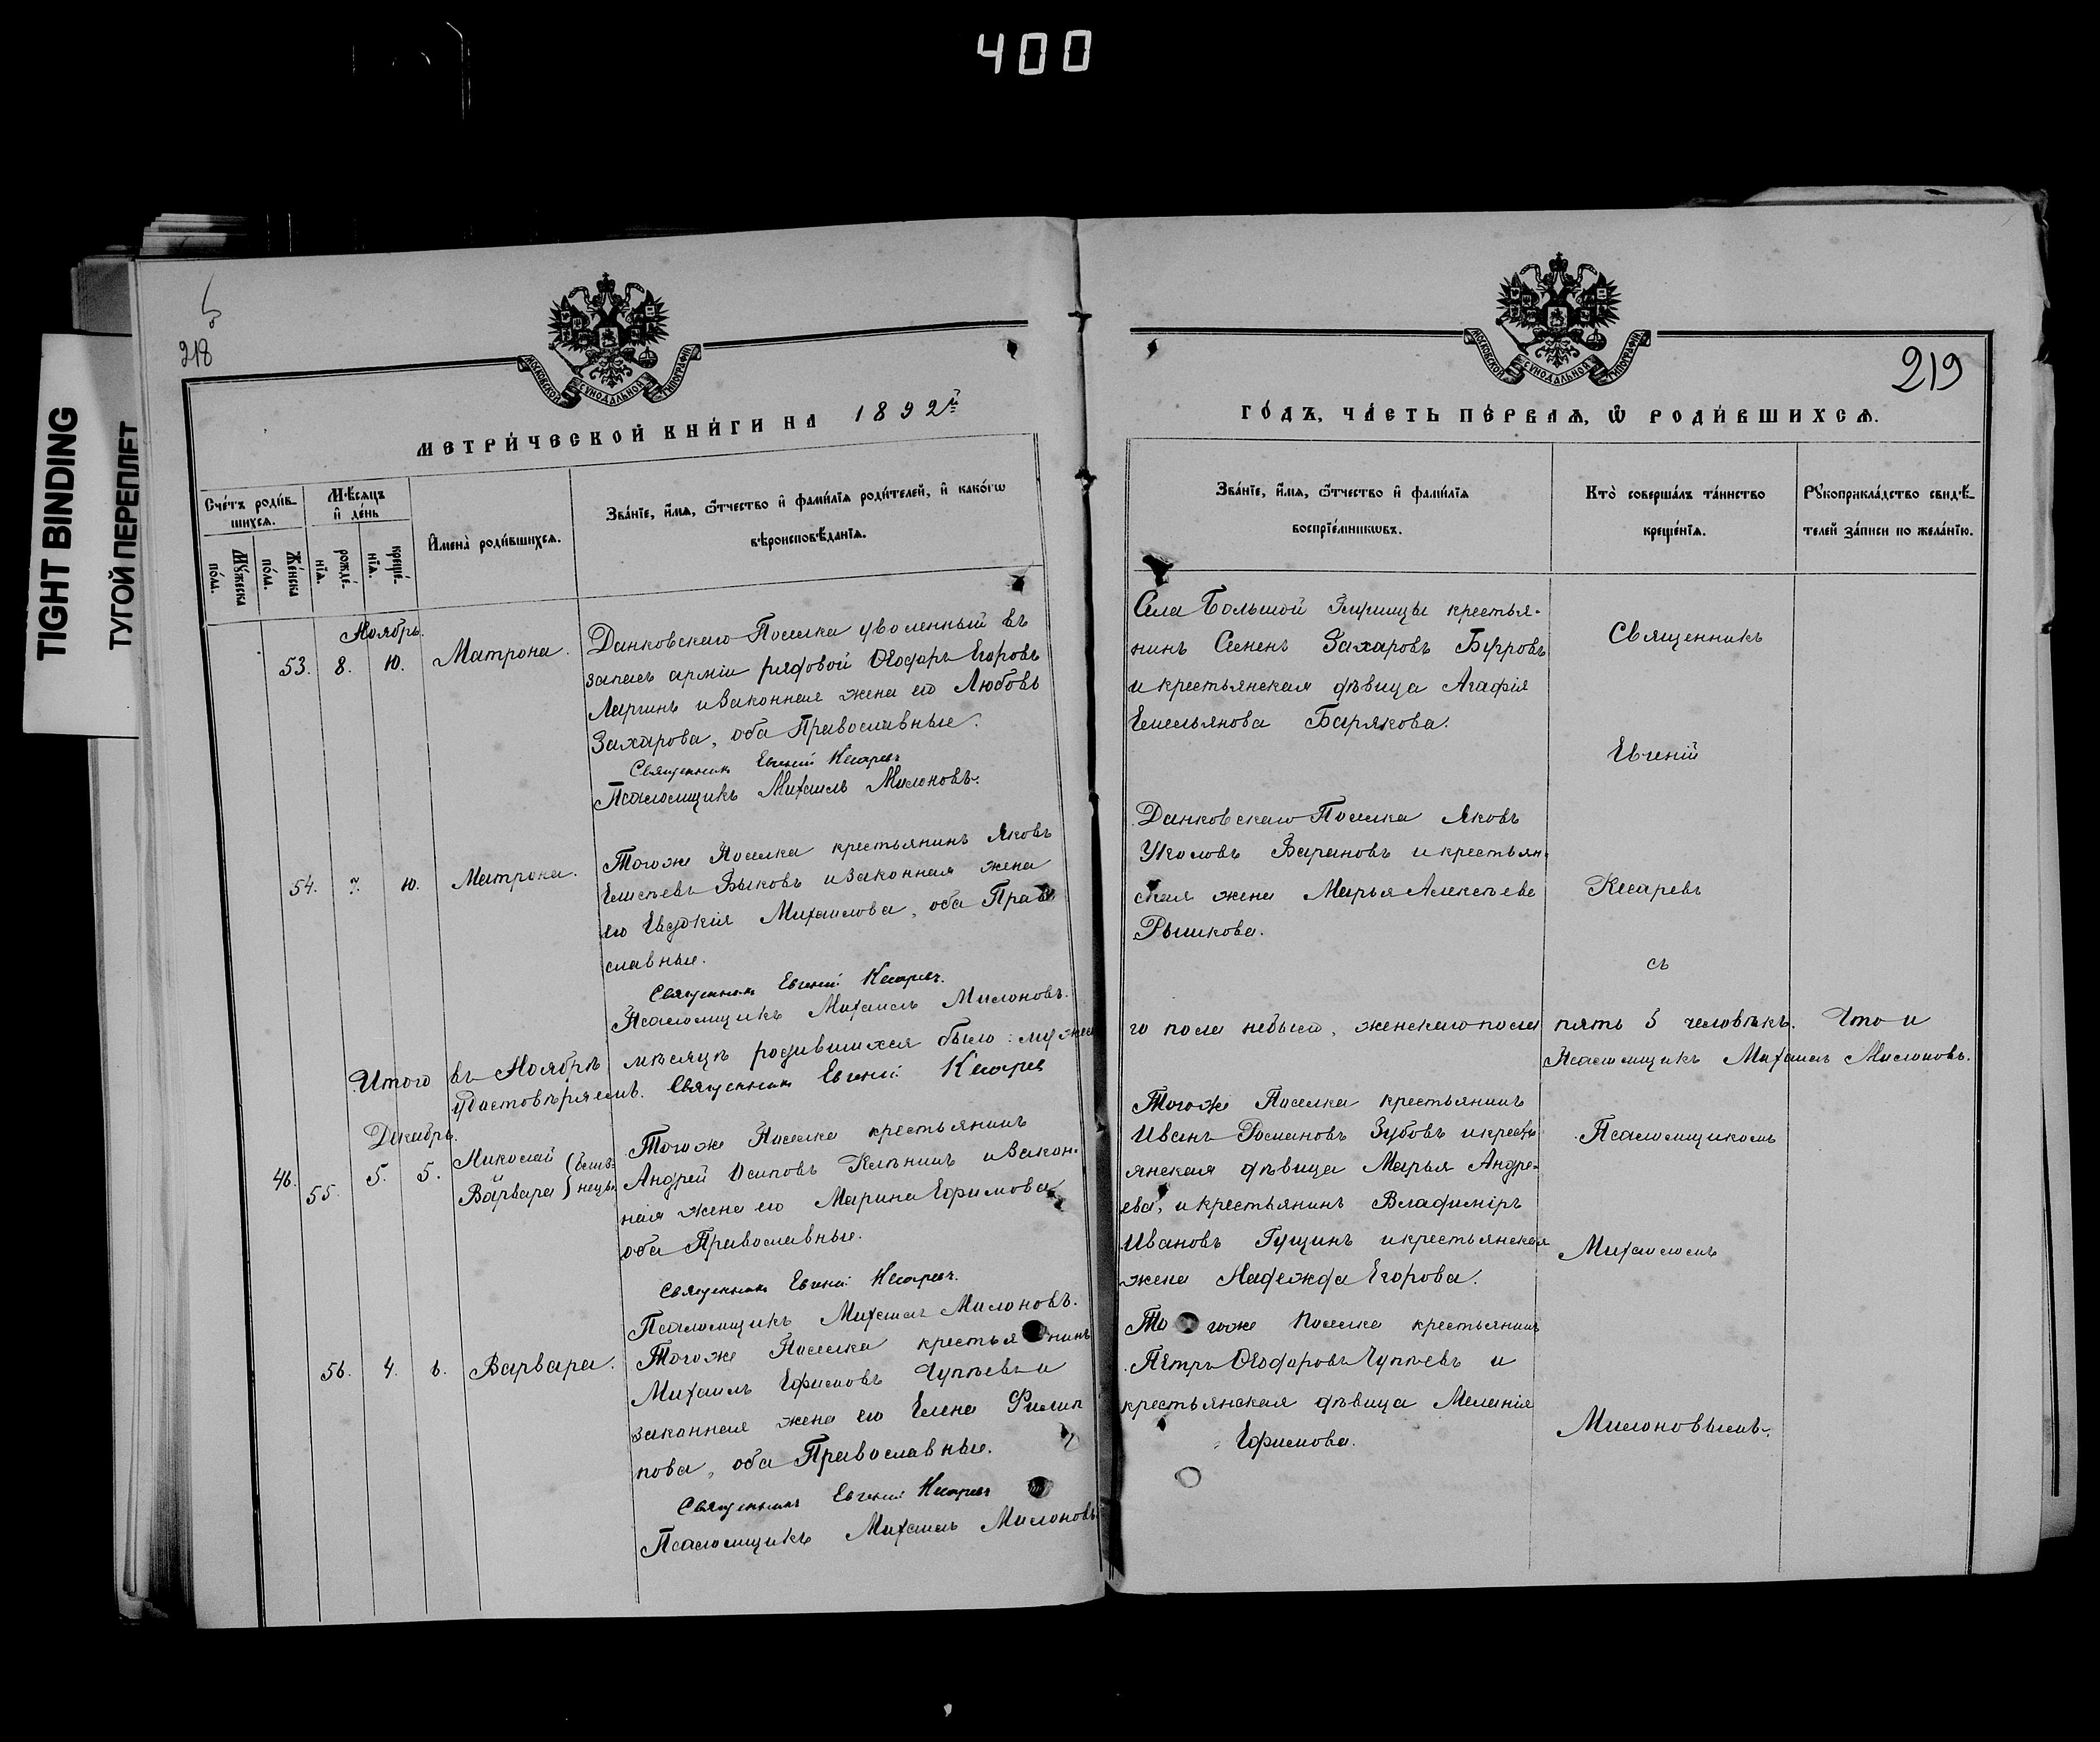 400
TIGHT BINDING
ТУГОЙ ПЕРЕПЛЕТ
218
МОСКОВСКОЙ СѴНОДАЛЬНОЙ ТИПОГРАФІИ
МЕТРИ́ЧЕСКОЙ КНИ́ГИ НА 1892й
Сче́тъ роди́в-
шихсѧ.
Мѣ́сѧцъ
и҆ де́нь
Мꙋ́жеска
по́ла.
Же́нска
по́ла.
рожде́-
нїѧ.
креще́-
нїѧ.
И҆мена̀ роди́вшихсѧ.
Зва́нїе, и҆́мѧ, ѻ҆́тчество и҆ фами́лїѧ роди́телей, и҆ како́гѡ
вѣроисповѣ́данїѧ.
Ноябрь.
53. 8. 10. Матрона.
Данковскаго Поселка уволенный въ
запасъ арміи рядовой Ѳеодоръ Егоровъ
Ларинъ и законная жена его Любовь
Захарова, оба Православные.
Священникъ Евгеній Кесаревъ
Псаломщикъ Михаилъ Милоновъ.
54. 7. 10. Матрона.
Тогоже Поселка крестьянинъ Яковъ
Елисѣевъ Быковъ и законная жена
его Евдокія Михаилова, оба Право
славные.
Священникъ Евгеній Кесаревъ.
Псаломщикъ Михаилъ Милоновъ.
Итого въ Ноябрѣ мѣсяцѣ родившихся было: мужска
удостовѣряемъ. Священникъ Евгеній Кесарев
Декабрь.
46. 55. 5. 5. Николай и Варвара (близнецы
Тогоже Поселка крестьянинъ
Андрей Осиповъ и закон-
ная жена его Марина Ефимова
оба Православные.
Священникъ Евгеній Кесаревъ.
Псаломщикъ Михаилъ Милоновъ.
56. 4. 6. Варвара.
Тогоже Поселка крестьянинъ
Михаилъ Ефимовъ Чупѣевъ и
законная жена его Елена Филип
пова, оба Православные.
Священникъ Евгеній Кесаревъ
Псаломщикъ Михаилъ Милоновъ
219
МОСКОВСКОЙ СѴНОДАЛЬНОЙ ТИПОГРАФІИ
ГО́ДЪ, ЧА́СТЬ ПЕ́РВАѦ, Ѡ҆ РОДИ́ВШИХСѦ.
Зва́нїе, и҆́мѧ, ѻ҆́тчество и҆ фами́лїѧ
воспрїе́мникѡвъ.
Кто̀ соверша́лъ та́инство
креще́нїѧ.
Рꙋкоприкла́дство свидѣ́-
телей за́писи по жела́нїю.
Села Большой крестья-
нинъ Семенъ Захаровъ
и крестьянская дѣвица Агафія
Емельянова Барякова.
Данковскаго Поселка Яковъ
Барановъ и крестьян-
ская жена Марья Алексѣева
Рышкова.
го пола небыло, женскаго пола пять 5 человѣкъ. Что и
Псаломщикъ Михаилъ Милоновъ.
Тогоже Поселка крестьянинъ
Иванъ Романовъ Зубовъ и кресть
янская дѣвица Марья Андре-
ева, и крестьянинъ Владиміръ
Ивановъ Гущинъ и крестьянская
жена Надежда Егорова.
Тогоже Поселка крестьянинъ
Петръ Ѳеодоровъ Чупѣевъ и
крестьянская дѣвица Меланія
Ефимова.
Священникъ
Евгеній
Кесаревъ
съ
Псаломщикомъ
Михаиломъ
Милоновымъ.